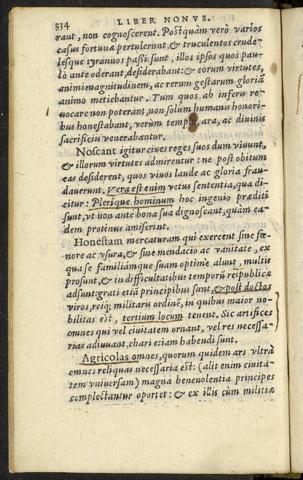 834 LIBER NONVS.
rant, non cognoscerent. Postquàm verò varios
casus fortunæ pertulerint, & truculentos crude-
lesque tyrannos passi sunt, illos ipsos quos pau-
lò ante oderant, desiderabant: & eorum virtutes,
animi magnitudinem, ac rerum gestarum gloriã
animo metiebantur. Tum quos ab inferis re-
uocare non poterãt, non solùm humanis honori-
bus honestabant, verùm templis, ara, ac diuinis
sacrificiis venerabantur.
Noscant igitur ciues reges suos dum viuunt,
& illorum virtutes admirentur: ne post obitum
eas desiderent, quos viuos laude ac gloria frau-
dauerunt. Vera est enim vetus sententia, qua di-
citur: Plerosque hominum hoc ingenio præditi
sunt, vt non ante bona sua dignoscant, quàm ea-
dem protinus amiserint.
Honestam mercaturam qui exercent sine fœ-
nore ac vsura, & sine mendacio ac vanitate, ex
qua se familiámque suam optimè alunt, multis
prosunt, & in difficultatibus temporũ reipublicæ
adsunt: grati etiã principibus sunt, & post doctos
viros, reiq; militaris ordinẽ, in quibus maior no-
bilitas est, tertium locum tenent. Sic artifices
omnes qui vel ciuitatem ornant, vel res necessa-
rias adiuuant, chari etiam habendi sunt.
Agricolas omnes, quorum quidem ars vltrà
omnes reliquas necessaria est: (alit enim ciuita-
tem vniuersam) magna beneuolentia principes
complectantur oportet: & ex illis cùm militiæ